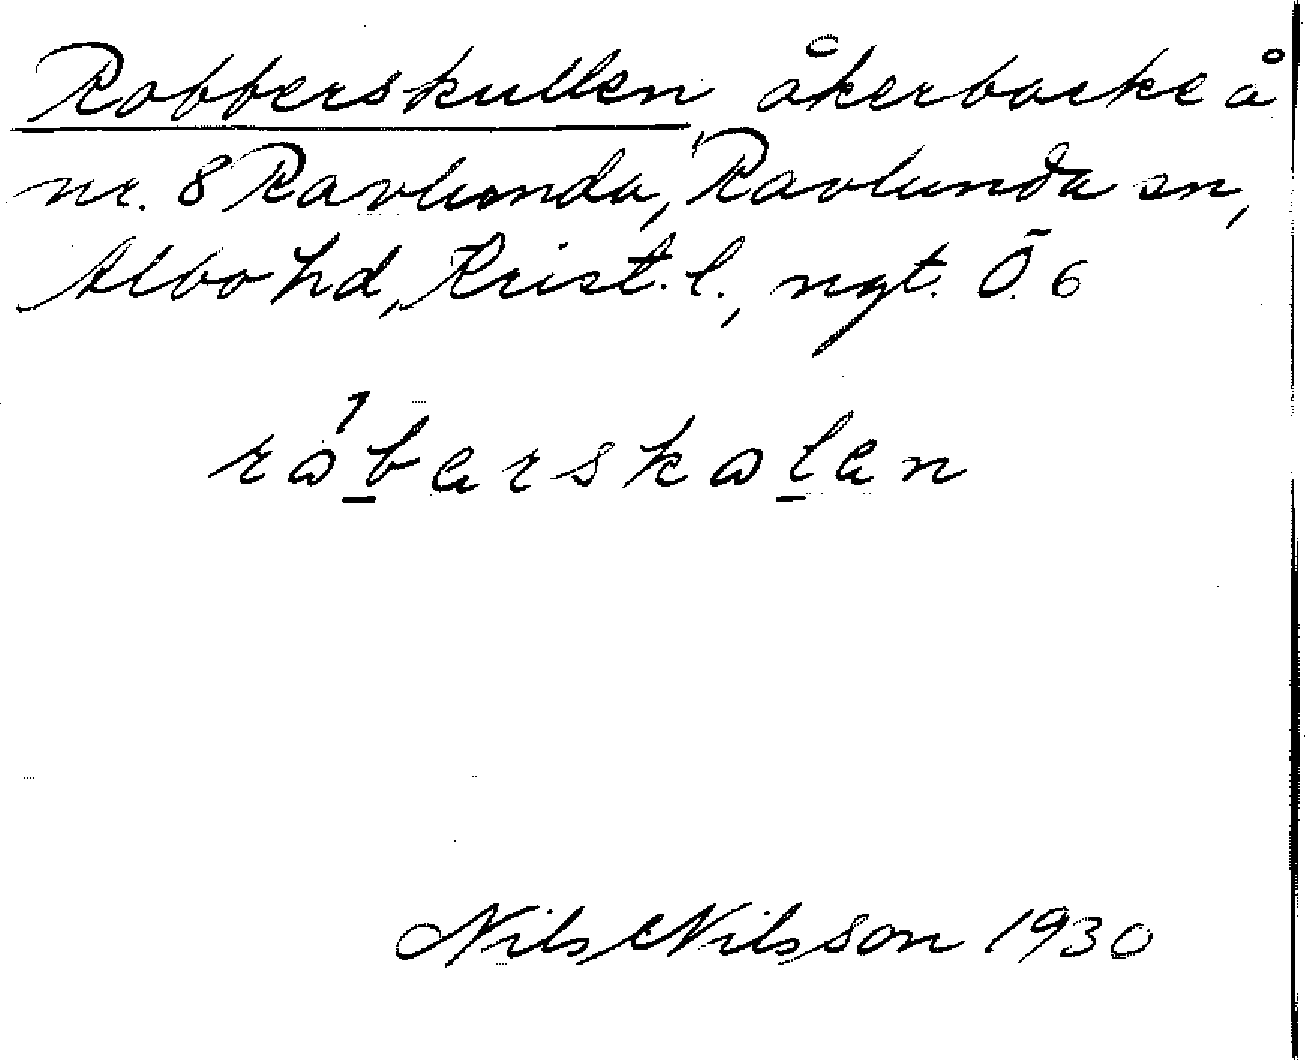 Robberskullen åkerbacke å
nr. 8 Ravlunda, Ravlunda sn,
Albo hd, Krist. l., ngt. Ö. 6
råbarskålan
Nils Nilsson 1930